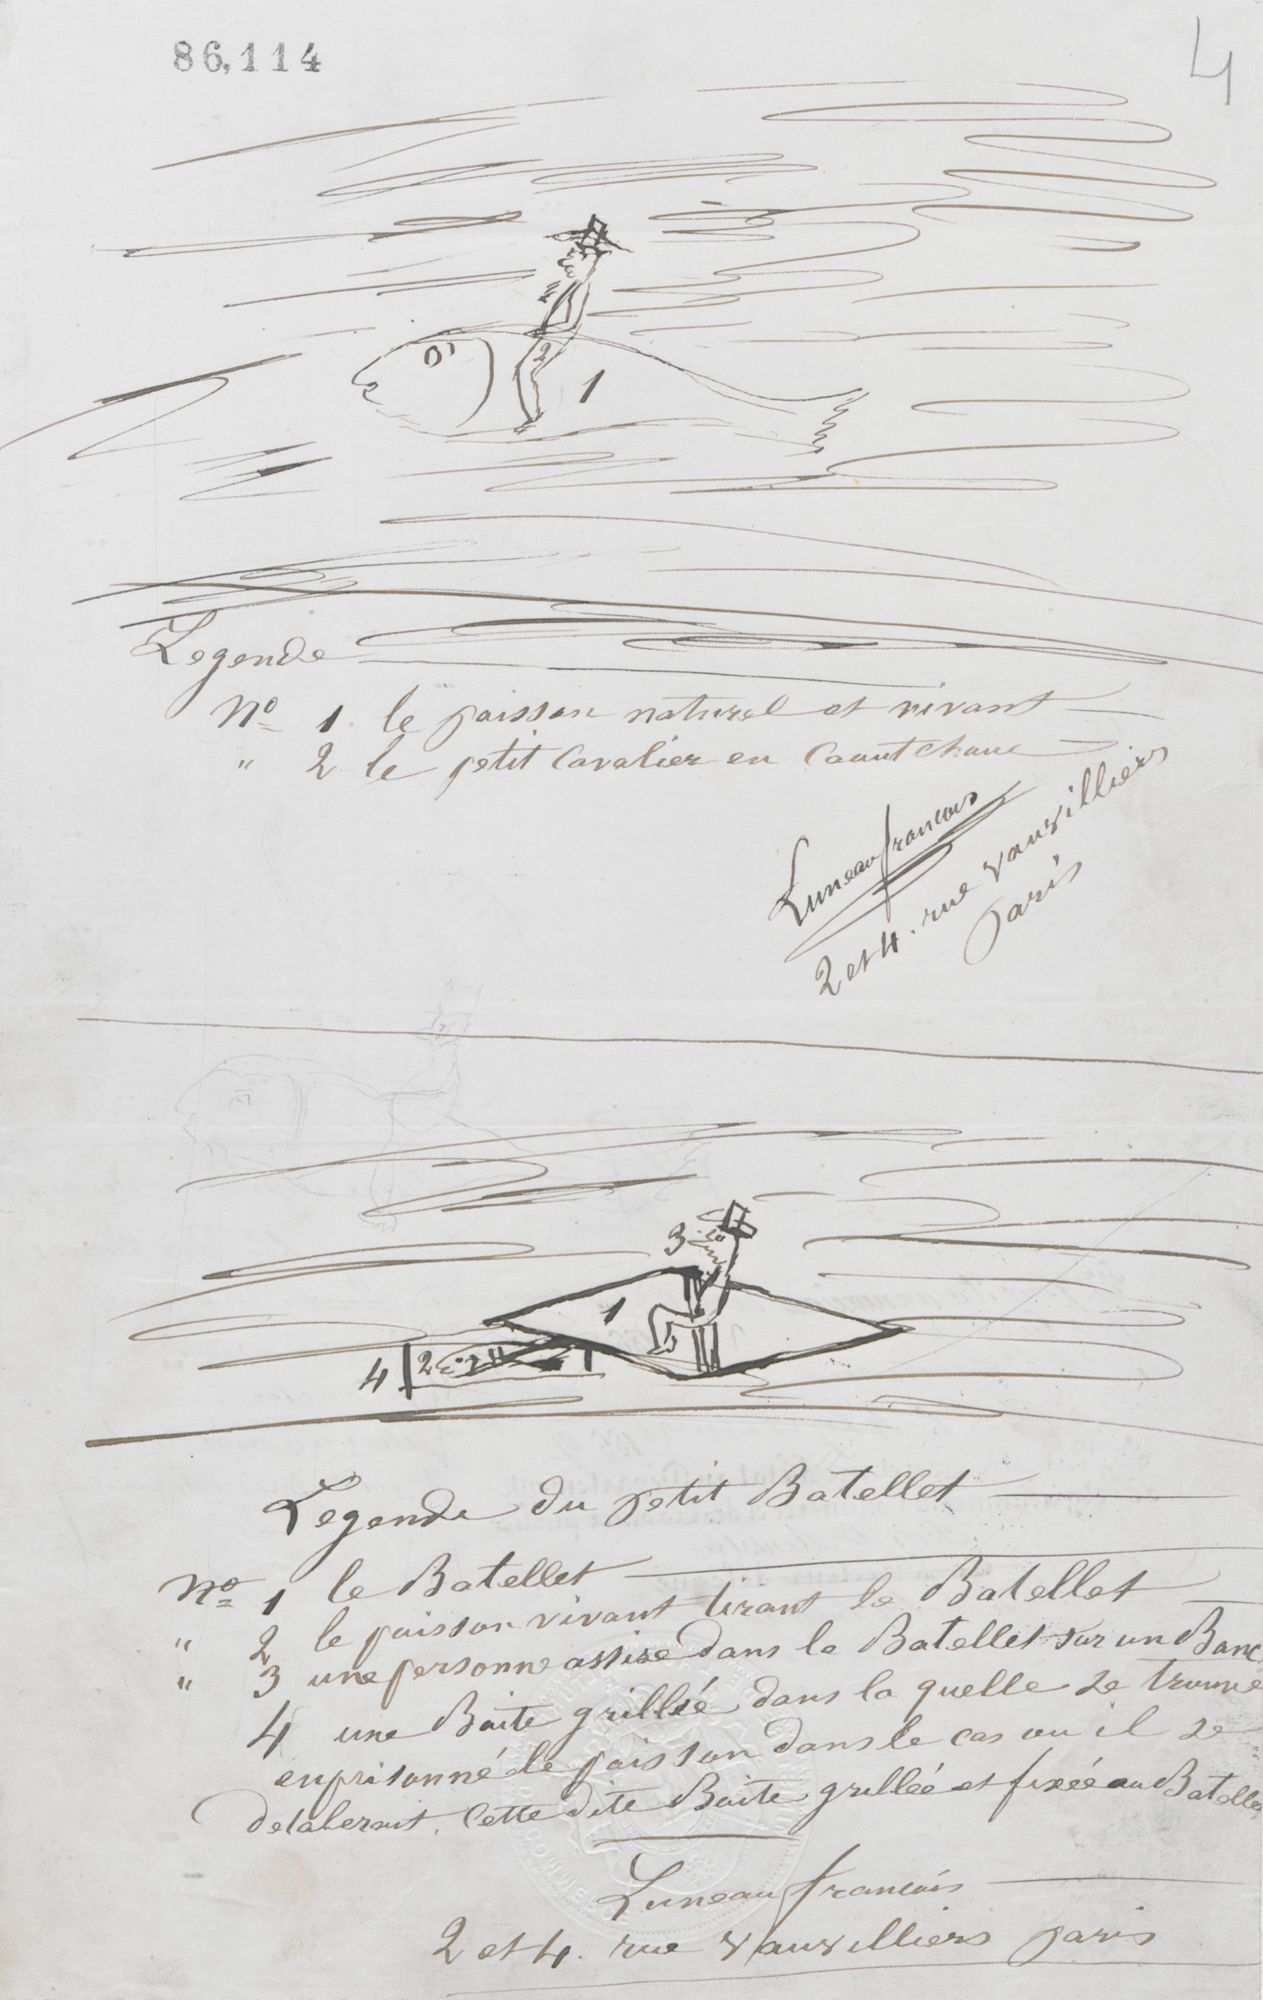 86,114
4
2
1
Legende
No 1 le poisson naturel et vivant
" 2 le petit Cavalier en Caoutchouc
Luneau francois
2 et 4. rue Vauvilliers
paris
3
1
4 2
Legende du petit Batellet
No 1 le Batellet
" 2 le poisson vivant tirant le Batellet
" 3 une personne assise dans le Batellet sur un Banc
4 une Boite grillée dans la quelle se trouve
enprisonné le poisson dans le cas ou il se
delaberait. Cette dite Boite grillée et fixée au Batellet
Luneau francois
2 et 4. rue Vauvilliers paris